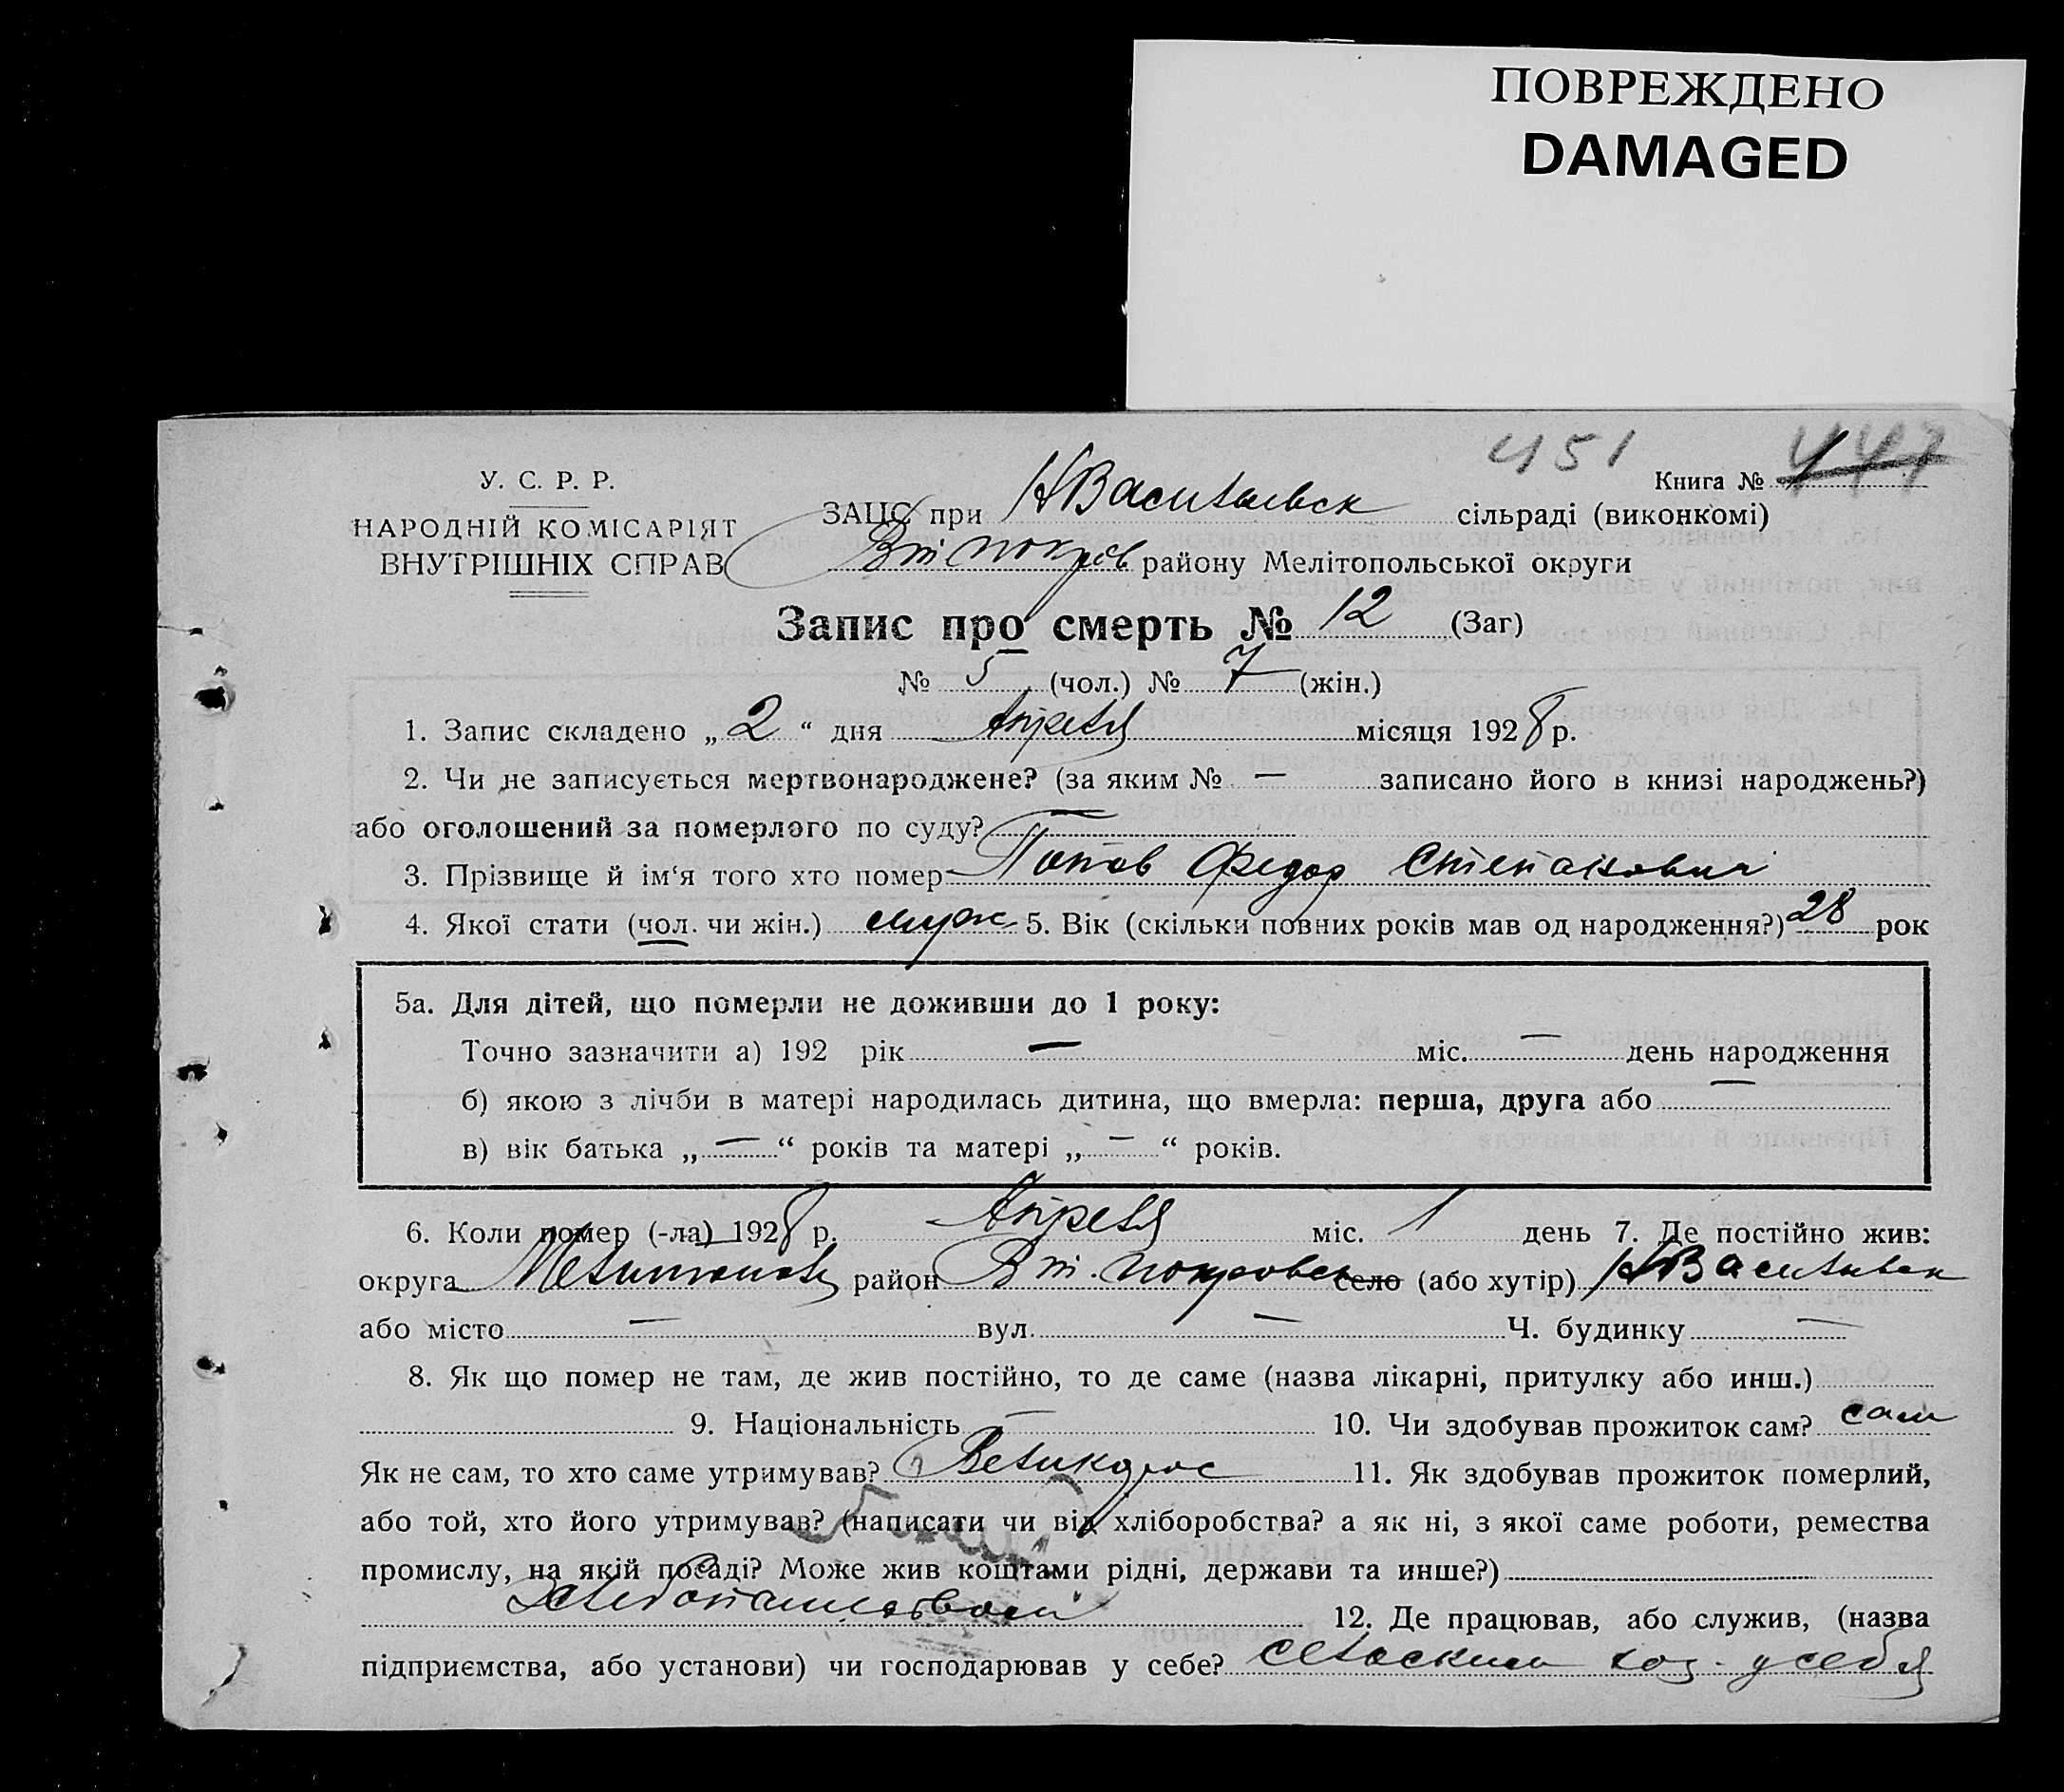 ПОВРЕЖДЕНО
DAMAGED
451
Книга № 447
У. С. Р. Р.
НАРОДНІЙ КОМІСАРІЯТ
ВНУТРІШНІХ СПРАВ
ЗАЦС при НВасильевск сільраді (виконкомі)
Вт покров району Мелітопольської округи
Запис про смерть № 12 (Заг)
№ 5 (чол.) № 7 (жін.)
1. Запис складено „ 2 “ дня Апреля місяця 1928 р.
2. Чи не записується мертвонароджене? (за яким № — записано його в книзі народжень?)
або оголошений за померлого по суду? —
3. Прізвище й ім‘я того хто помер Попов Федор Степанович
4. Якої стати (чол. чи жін.) муж 5. Вік (скільки повних років мав од народження?) 28 рок
5а. Для дітей, що померли не доживши до 1 року:
Точно зазначити а) 192 рік — міс. — день народження
б) якою з лічби в матері народилась дитина, що вмерла: перша, друга або —
в) вік батька „ — “ років та матері „ — “ років.
6. Коли помер (-ла) 1928 р. Апреля міс. 1 день 7. Де постійно жив:
округа район Вт. покровск село (або хутір) НВасильевск
або місто — вул. — Ч. будинку —
8. Як що помер не там, де жив постійно, то де саме (назва лікарні, притулку або инш.)
— 9. Національність 10. Чи здобував прожиток сам? сам
Як не сам, то хто саме утримував? Великорос 11. Як здобував прожиток померлий,
або той, хто його утримував? (написати чи від хліборобства? а як ні, з якої саме роботи, ремества
промислу, на якій посаді? Може жив коштами рідні, держави та инше?)
Хлебопашеством 12. Де працював, або служив, (назва
підприємства, або установи) чи господарював у себе? сельским хоз. у себя